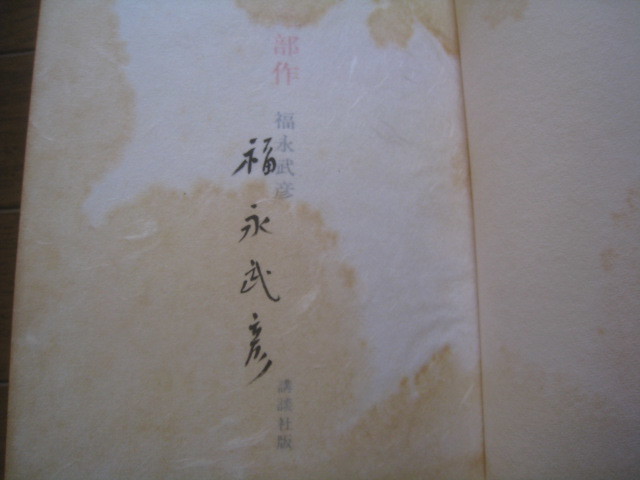 部作
福永武彦
福永武彦
講談社版